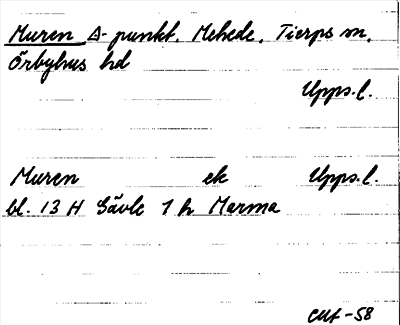 Muren △-punkt. Mehede, Tierps sn,
Örbyhus hd
Upps.l.
Muren ek Upps.l.
bl. 13 H Gävle 1 h Marma
-58